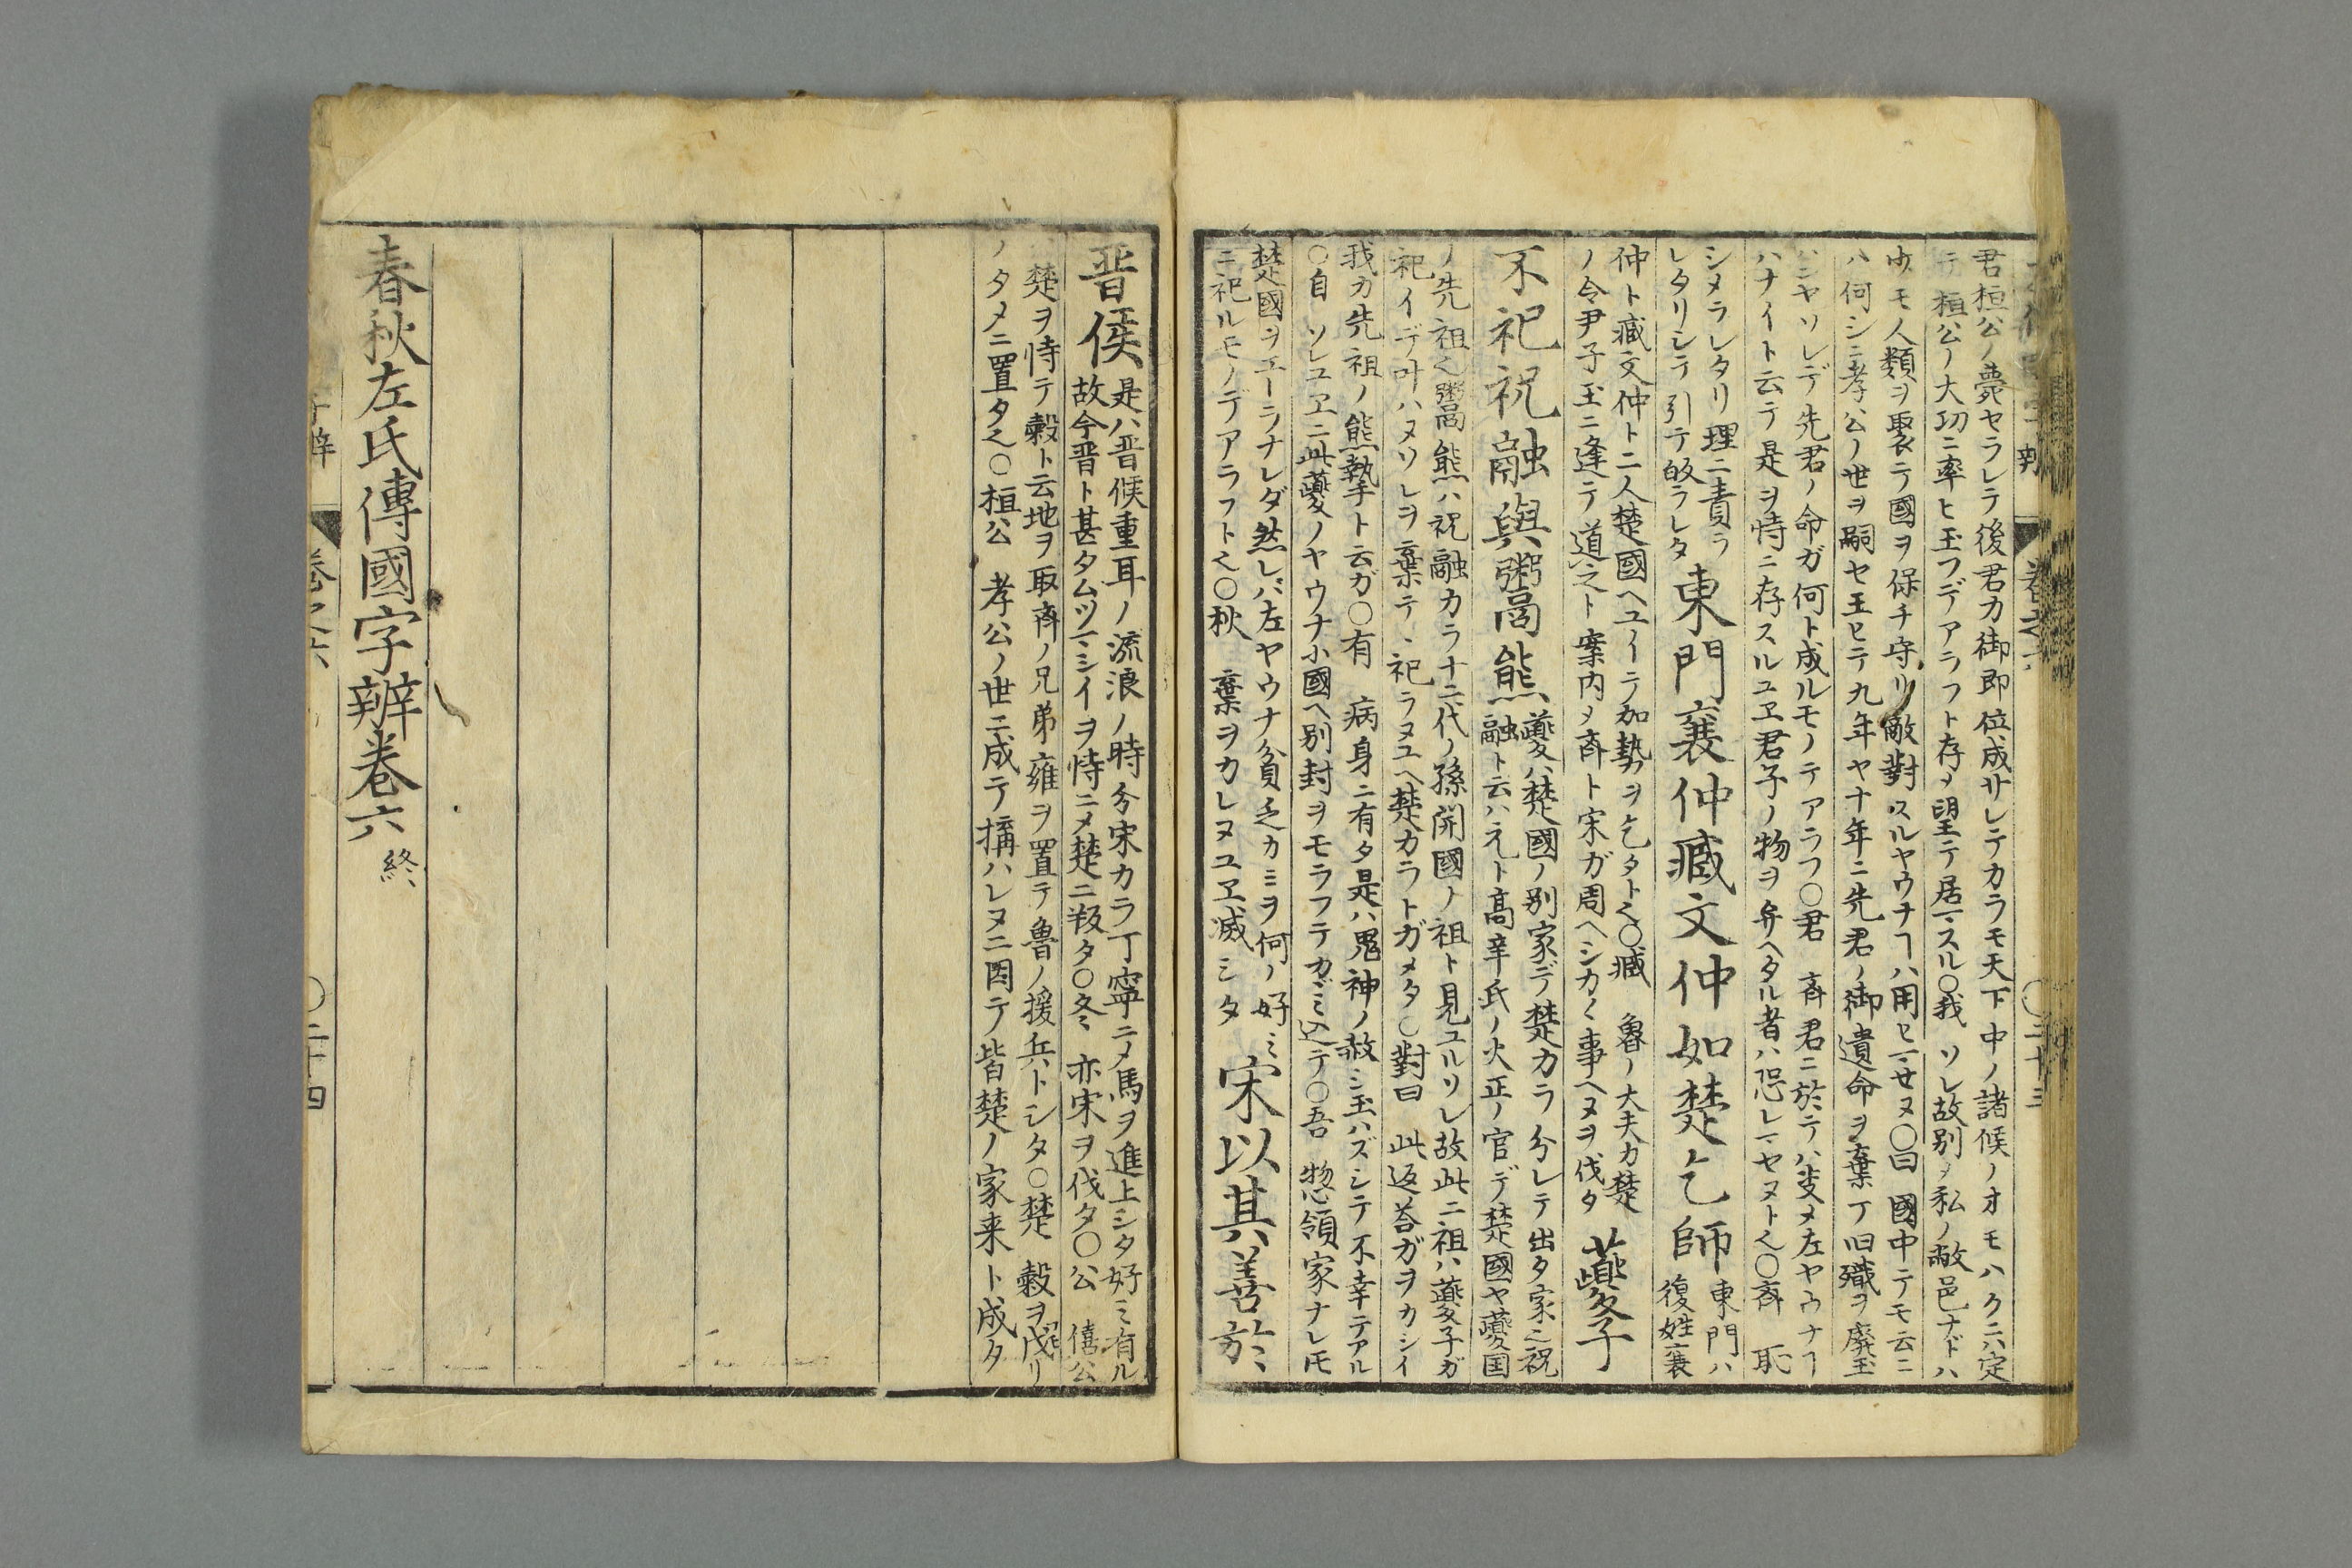 君桓公ノ薨ヤラレテ後君カ御即位成サレテカラモ天下中ノ諸候ノオモハクニハ定
テ桓公ノ大功ニ率ヒ玉フデアラフト存〆望テ居マスル○我 ソレ故別〆私ノ敝邑ナドハ
ウモ人類ヲ聚テ國ヲ保チ守リ敵對スルヤウナヿハ用ヒマセヌ○曰 國中テモ云ニ
ハ何シニ孝公ノ世ヲ嗣セ玉ヒテ九年ヤ十年ニ先君ノ御遺命ヲ棄テ旧職ヲ廃玉
ハンヤソレデ先君ノ命ガ何ト成ルモノテアラフ○君 斉君ニ於テハ支〆左ヤウナヿ
ハナイト云テ是ヲ恃ニ存スルユヱ君子ノ物ヲ弁ヘタル者ハ恐レマセヌト也○斉 恥
シメラレタリ理ニ責ラ
レタリシテ引テ皈ラレタ
東門襄仲臧文仲如楚乞師
東門ハ
復姓襄
仲ト臧文仲ト二人楚國ヘユイテ加勢ヲ乞タト也○臧 魯ノ大夫カ楚
ノ令尹子玉ニ逢テ道之ト案内〆斉ト宋ガ周ヘシカ〱事ヘヌヲ伐タ
夔子
不祀祝融與鬻熊
夔ハ楚國ノ別家デ楚カラ分レテ出タ家也祝
融ト云ハ元ト高辛氏ノ火正ノ官デ楚國ヤ夔国
ノ先祖也鬻熊ハ祝融カラ十二代ノ孫開國ノ祖ト見ユルソレ故此二祖ハ夔子ガ
祀イデ叶ハヌソレヲ棄テヽ祀ラヌユヘ楚カラトガメタ○對曰 此返荅ガヲカシイ
我カ先祖ノ熊摯ト云ガ○有 病身ニ有タ是ハ鬼神ノ赦シ玉ハズシテ不幸テアル
○自 ソレユヱニ此夔ノヤウナ小國ヘ別封ヲモラフテカヾミ込テ○吾 惣領家ナレモ
楚國ヲユーラナレダ然レバ左ヤウナ貧乏カミヲ何ノ好ミ
ニ祀ルモノデアラフト也○秋 棄ヲカレヌユヱ滅シタ
宋以其善於
晋侯
是ハ晋候重耳ノ流浪ノ時分宋カラ丁寧ニ〆馬ヲ進上シタ好ミ有ル
故今晋ト甚タムツマシイヲ恃ニ〆楚ニ叛タ○冬 亦宋ヲ伐タ○公 僖公
ハ楚ヲ恃テ穀ト云地ヲ取斉ノ兄弟雍ヲ置テ魯ノ援兵トシタ○楚 穀ヲ戍リ
ノタメニ置タ也○桓公 孝公ノ世ニ成テ搆ハレヌニ因テ皆楚ノ家来ト成タ
春秋左氏傳國字辨卷六 終
卷之六 ○二十四